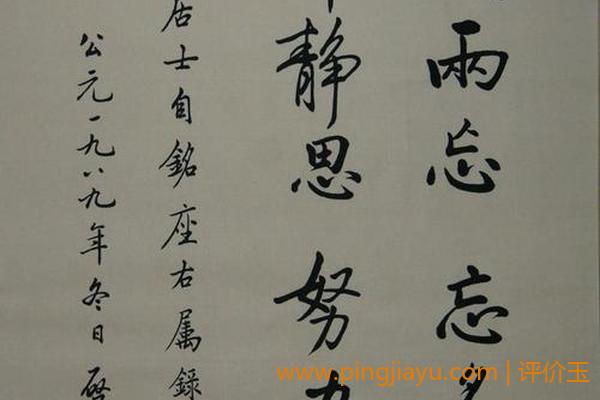 兩忘忘
静思努力
居士自銘座右属録
公元一九八九年冬日啓
www.pingjiayu.com | 评价玉